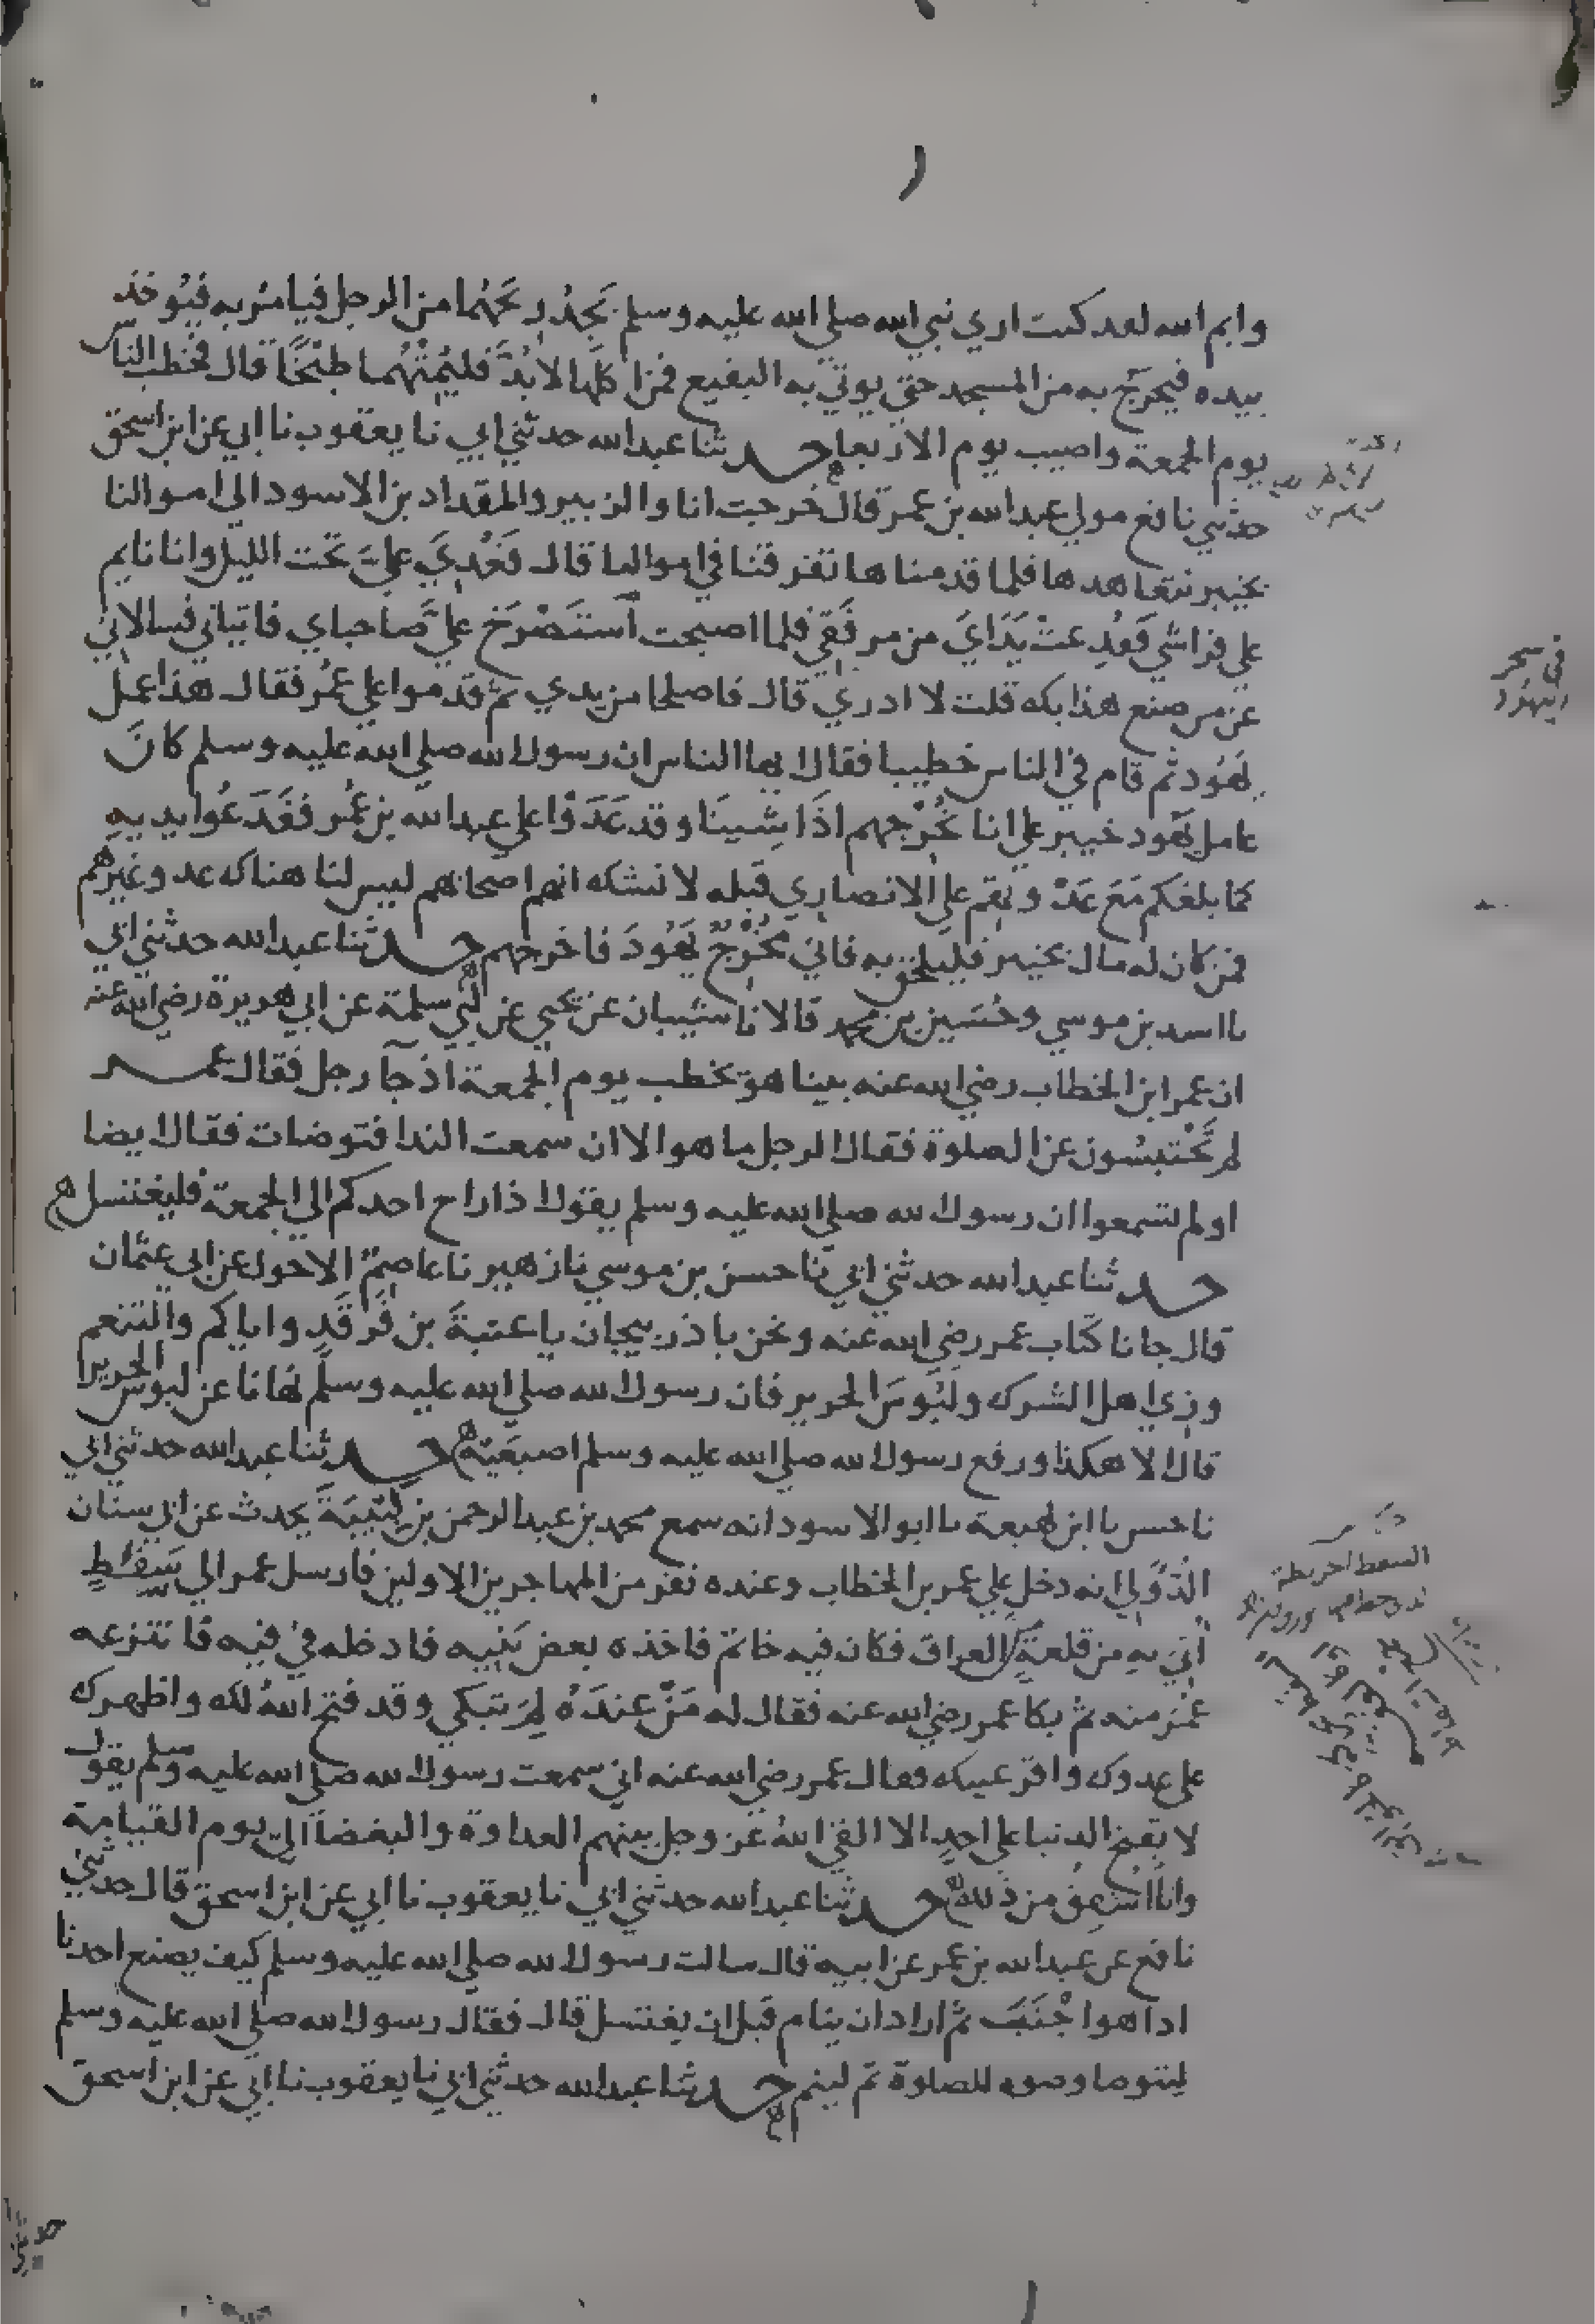 وايم الله لقد كنت اري نبي الله صلي الله عليه وسلم يجد ريحهما من الرجل فيامر به فيوخذ
بيده فيخرج به من المسجد حتي يوتي به البقيع فمن اكلهما لا بد فليمتهما طبخا قال فخطب الناس
يوم الجمعة واصيب يوم الاربعا حدثنا عبد الله حدثني ابي نا يعقوب نا ابي عن ابن اسحق
حدثني نافع مولي عبد الله بن عمر قال خرجت انا والزبير والمقداد بن الاسود الي اموالنا
بخيبر نتعاهدها فلما قدمناها تفرقنا في اموالنا قال فعدي علي تحت الليل وانا نايم
علي فراشي ففدعت يداي من مرفقي فلما اصبحت استصرخ علي صاحباي فاتياني فسالاني
عن من صنع هذا بك قلت لا ادري قال فاصلحا من يدي ثم قدموا علي عمر فقال هذا عمل
يهود ثم قام في الناس خطيبا فقال ايها الناس ان رسول الله صلي الله عليه وسلم كان
عامل يهود خيبر علي انا نخرجهم اذا شينا وقد عدوا علي عبد الله بن عمر ففدعوا يديه
كما بلغكم مع عدوتهم علي الانصاري قبله لا نشك انهم اصحابهم ليس لنا هناك عدو غيرهم
فمن كان له مال بخيبر فليلحق به فاني مخرج يهود فاخرجهم حدثنا عبد الله حدثني ابي
نا اسد بن موسي وحسين بن محمد قالا نا شيبان عن يحيي عن ابي سلمة عن ابي هريرة رضي الله عنه
ان عمر ابن الخطاب رضي الله عنه بينا هو يخطب يوم الجمعة اذ جآ رجل فقال عمر
لم تحتبسون عن الصلوة فقال الرجل ما هو الا ان سمعت الندا فتوضات فقال ايضا
اولم تسمعوا ان رسول الله صلي الله عليه وسلم يقول اذا راح احدكم الي الجمعة فليغتسل
حدثنا عبد الله حدثني ابي نا حسن بن موسي نا زهير نا عاصم الاحول عن ابي عثمان
قال جانا كتاب عمر رضي الله عنه ونحن باذربيجان يا عتبة بن فرقد واياكم والتنعم
وزي اهل الشرك ولبوس الحرير فان رسول الله صلي الله عليه وسلم نهانا عن لبوس الحرير
قال الا هكذا ورفع رسول الله صلي الله عليه وسلم اصبعيه حدثنا عبد الله حدثني ابي
نا حسن نا ابن لهيعة نا ابو الاسود انه سمع محمد بن عبد الرحمن بن لبيبة يحدث عن ابي سنان
الدؤلي انه دخل علي عمر بن الخطاب وعنده نفر من المهاجرين الاولين فارسل عمر الي سفط
اتي به من قلعة العراق فكان فيه خاتم فاخذه بعض بنيه فادخله في فيه فانتزعه
عمر منه ثم بكا عمر رضي الله عنه فقال له من عنده لم تبكي وقد فتح الله لك واظهرك
علي عدوك واقر عينك فقال عمر رضي الله عنه اني سمعت رسول الله صلي الله عليه وسلم يقول
لا تفتح الدنيا علي احد الا القي الله عز وجل بينهم العداوة والبغضآ الي يوم القيامة
وانا اشفق من ذلك حدثنا عبد الله حدثني ابي نا يعقوب نا ابي عن ابن اسحق قال حدثني
نافع عن عبد الله بن عمر عن ابيه قال سالت رسول الله صلي الله عليه وسلم كيف يصنع احدنا
اذا هوا جنب ثم اراد ان ينام قبل ان يغتسل قال فقال رسول الله صلي الله عليه وسلم
ليتوضا وضوه للصلوة ثم لينم حدثنا عبد الله حدثني ابي نا يعقوب نا ابي عن ابن اسحق
في سحر
اليهود